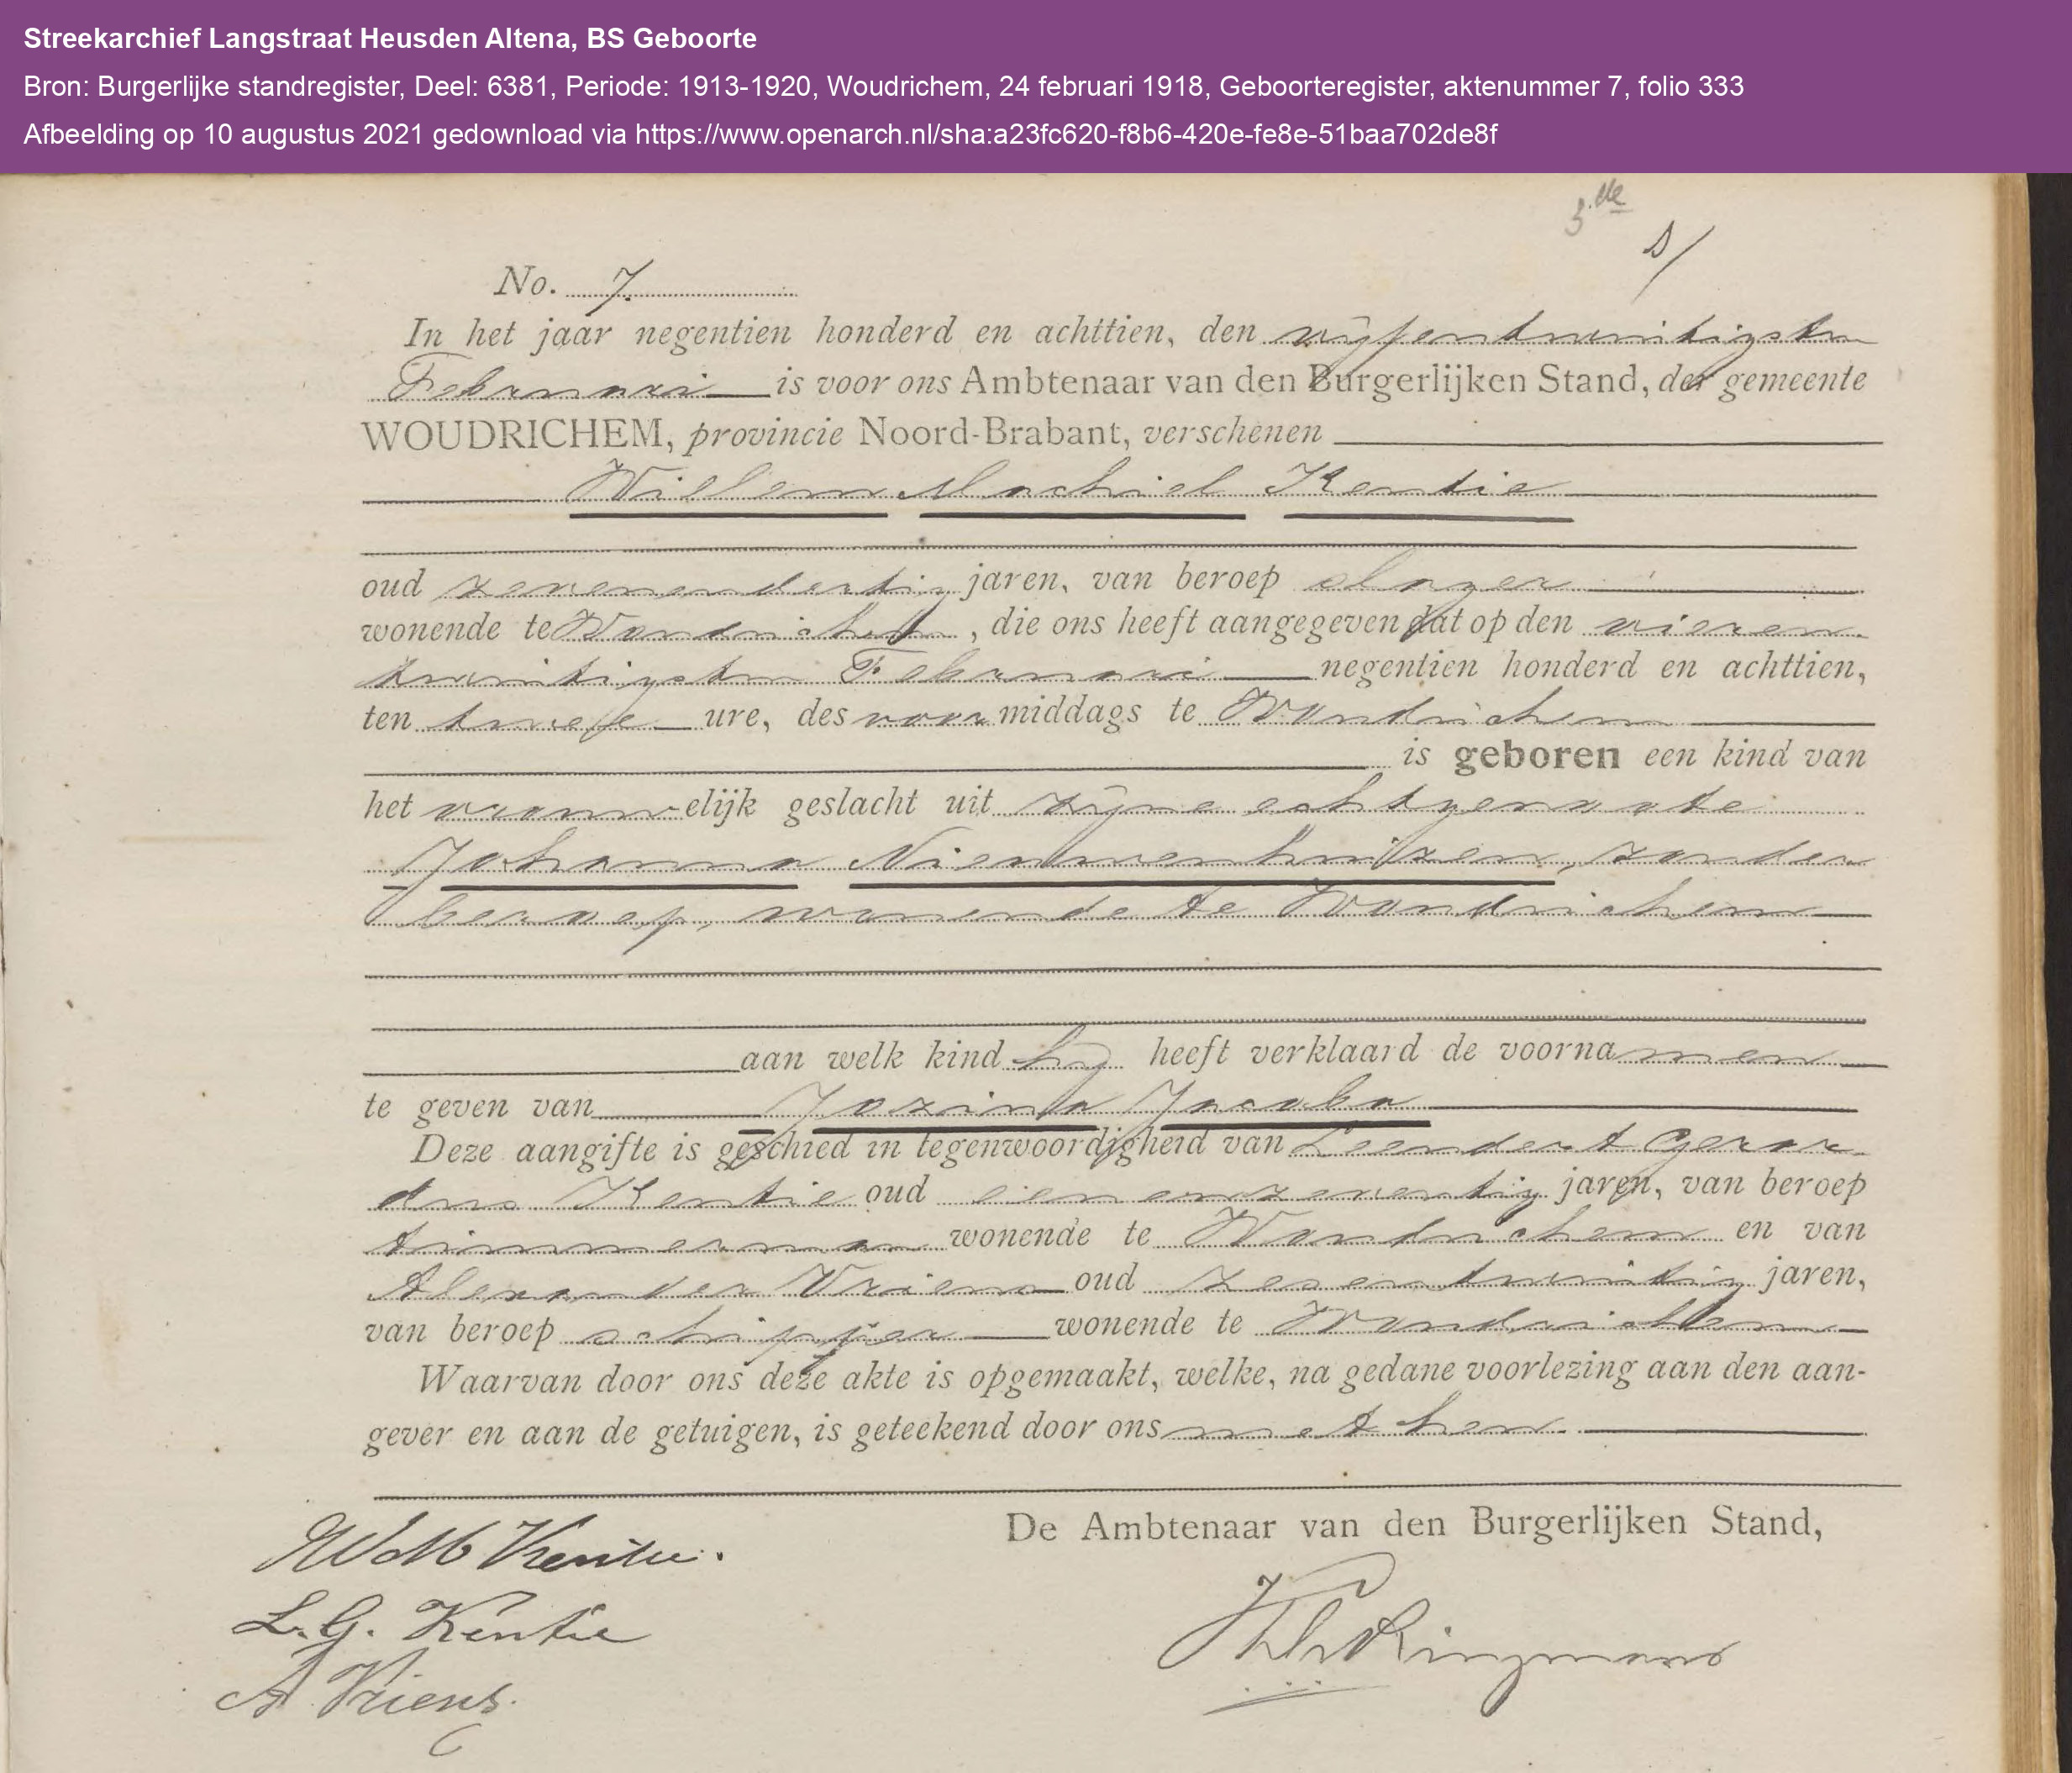 Streekarchief Langstraat Heusden Altena, BS Geboorte
Bron: Burgerlijke standregister, Deel: 6381, Periode: 1913-1920, Woudrichem, 24 februari 1918, Geboorteregister, aktenummer 7, folio 333
Afbeelding op 10 augustus 2021 gedownload via https://www.openarch.nl/sha:a23fc620-f8b6-420e-fe8e-51baa702de8f
3de
No. 7.
In het jaar negentien honderd en achttien, den vijfentwintigsten
Februari is voor ons Ambtenaar van den Burgerlijken Stand, der gemeente
WOUDRICHEM, provincie Noord-Brabant, verschenen
Willem Machiel Kentie
oud zevenendertig jaren, van beroep slager
wonende te Woudrichem, die ons heeft aangegeven dat op den vieren-
twintigsten Februari negentien honderd en achttien,
ten twee ure, des voormiddags te Woudrichem
is geboren een kind van
het vrouwelijk geslacht uit zijne echtgenoote
Johanna Nieuwenhuizen, zonder
beroep, wonende te Woudrichem
aan welk kind hij heeft verklaard de voornamen
te geven van Jozina Jacoba
Deze aangifte is geschied in tegenwoordigheid van Leendert Gerar-
dus Kentie oud eenenzeventig jaren, van beroep
timmerman wonende te Woudrichem en van
Alexander Vriens oud zesentwintig jaren,
van beroep schipper wonende te Woudrichem
Waarvan door ons deze akte is opgemaakt, welke, na gedane voorlezing aan den aan-
gever en aan de getuigen, is geteekend door ons met hen.
De Ambtenaar van den Burgerlijken Stand,
W M Kentie.
L. G. Kentie
A Vriens.